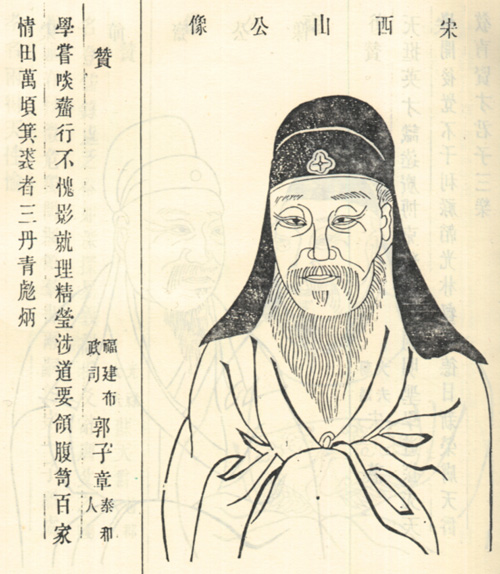 宋西山公像
贊 福建布政司郭子章泰和人
學嘗啖薺行不愧影就理精瑩涉道要領腹笥百家
情田萬頃箕裘者三丹青彪炳